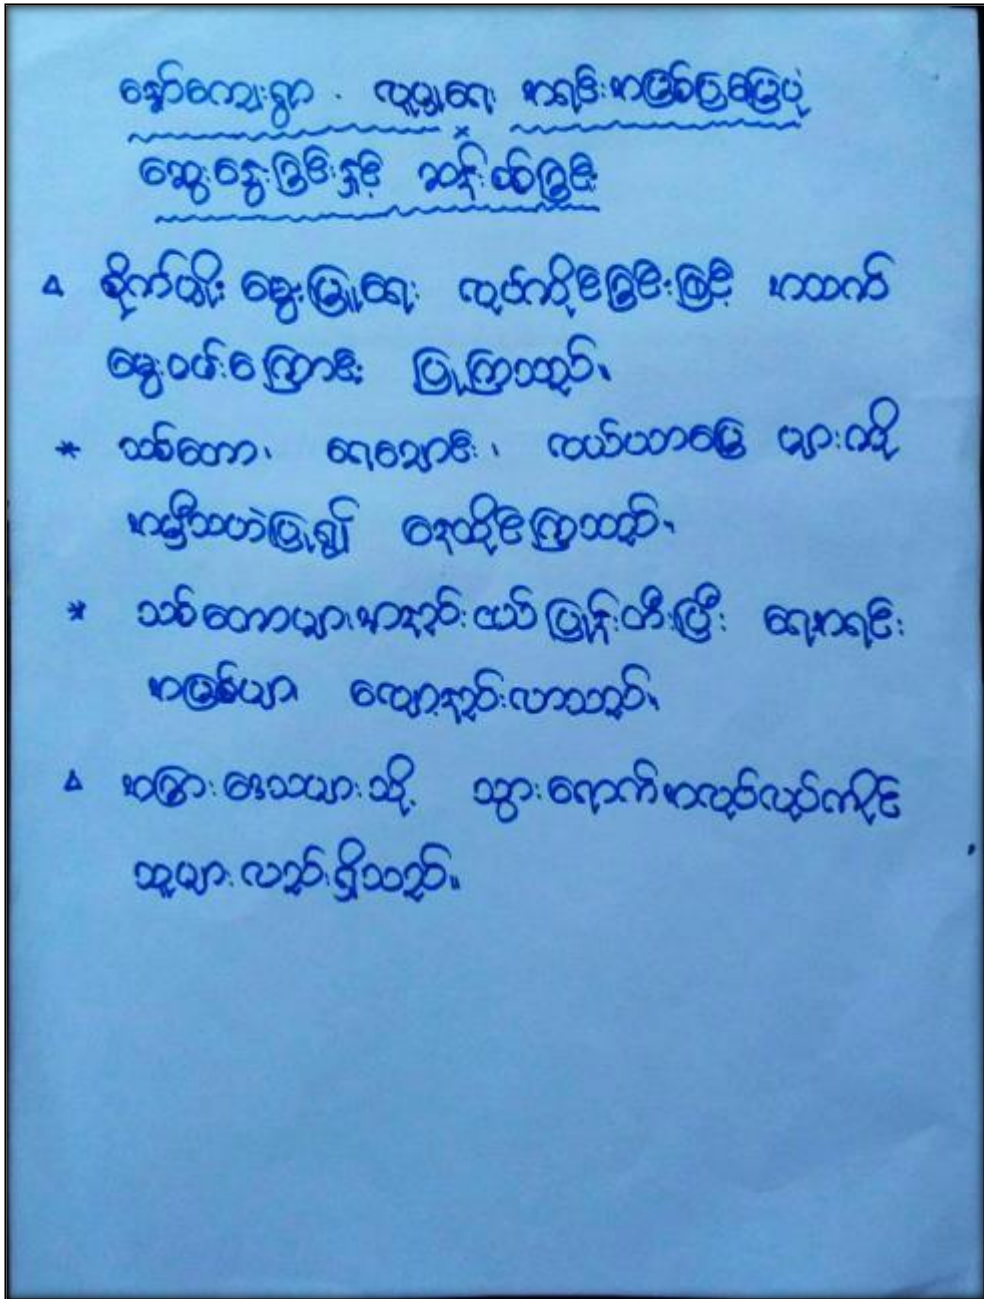 ဒေါ်ကျေးရွာ . လူမှုရေး အရင်းအမြစ်ပြမြေပုံ
ဆွေးနွေးခြင်းနှင့် ဆန်းစစ်ခြင်း
△ စိုက်ပျိုးမွေးမြူရေး လုပ်ကိုင်ခြင်းဖြင့် အသက်
မွေးဝမ်းကြောင်း ပြုကြသည်။
* သစ်တော၊ ရေချောင်း၊ လယ်ယာမြေ များကို
အမှီသဟဲပြု၍ နေထိုင်ကြသည်။
* သစ်တောများအနည်းငယ်ပြုန်းတီးပြီး ရေအရင်း
အမြစ်များ လျော့နည်းလာသည်။
△ အခြားဒေသများသို့ သွားရောက်အလုပ်လုပ်ကိုင်
သူများလည်းရှိသည်။